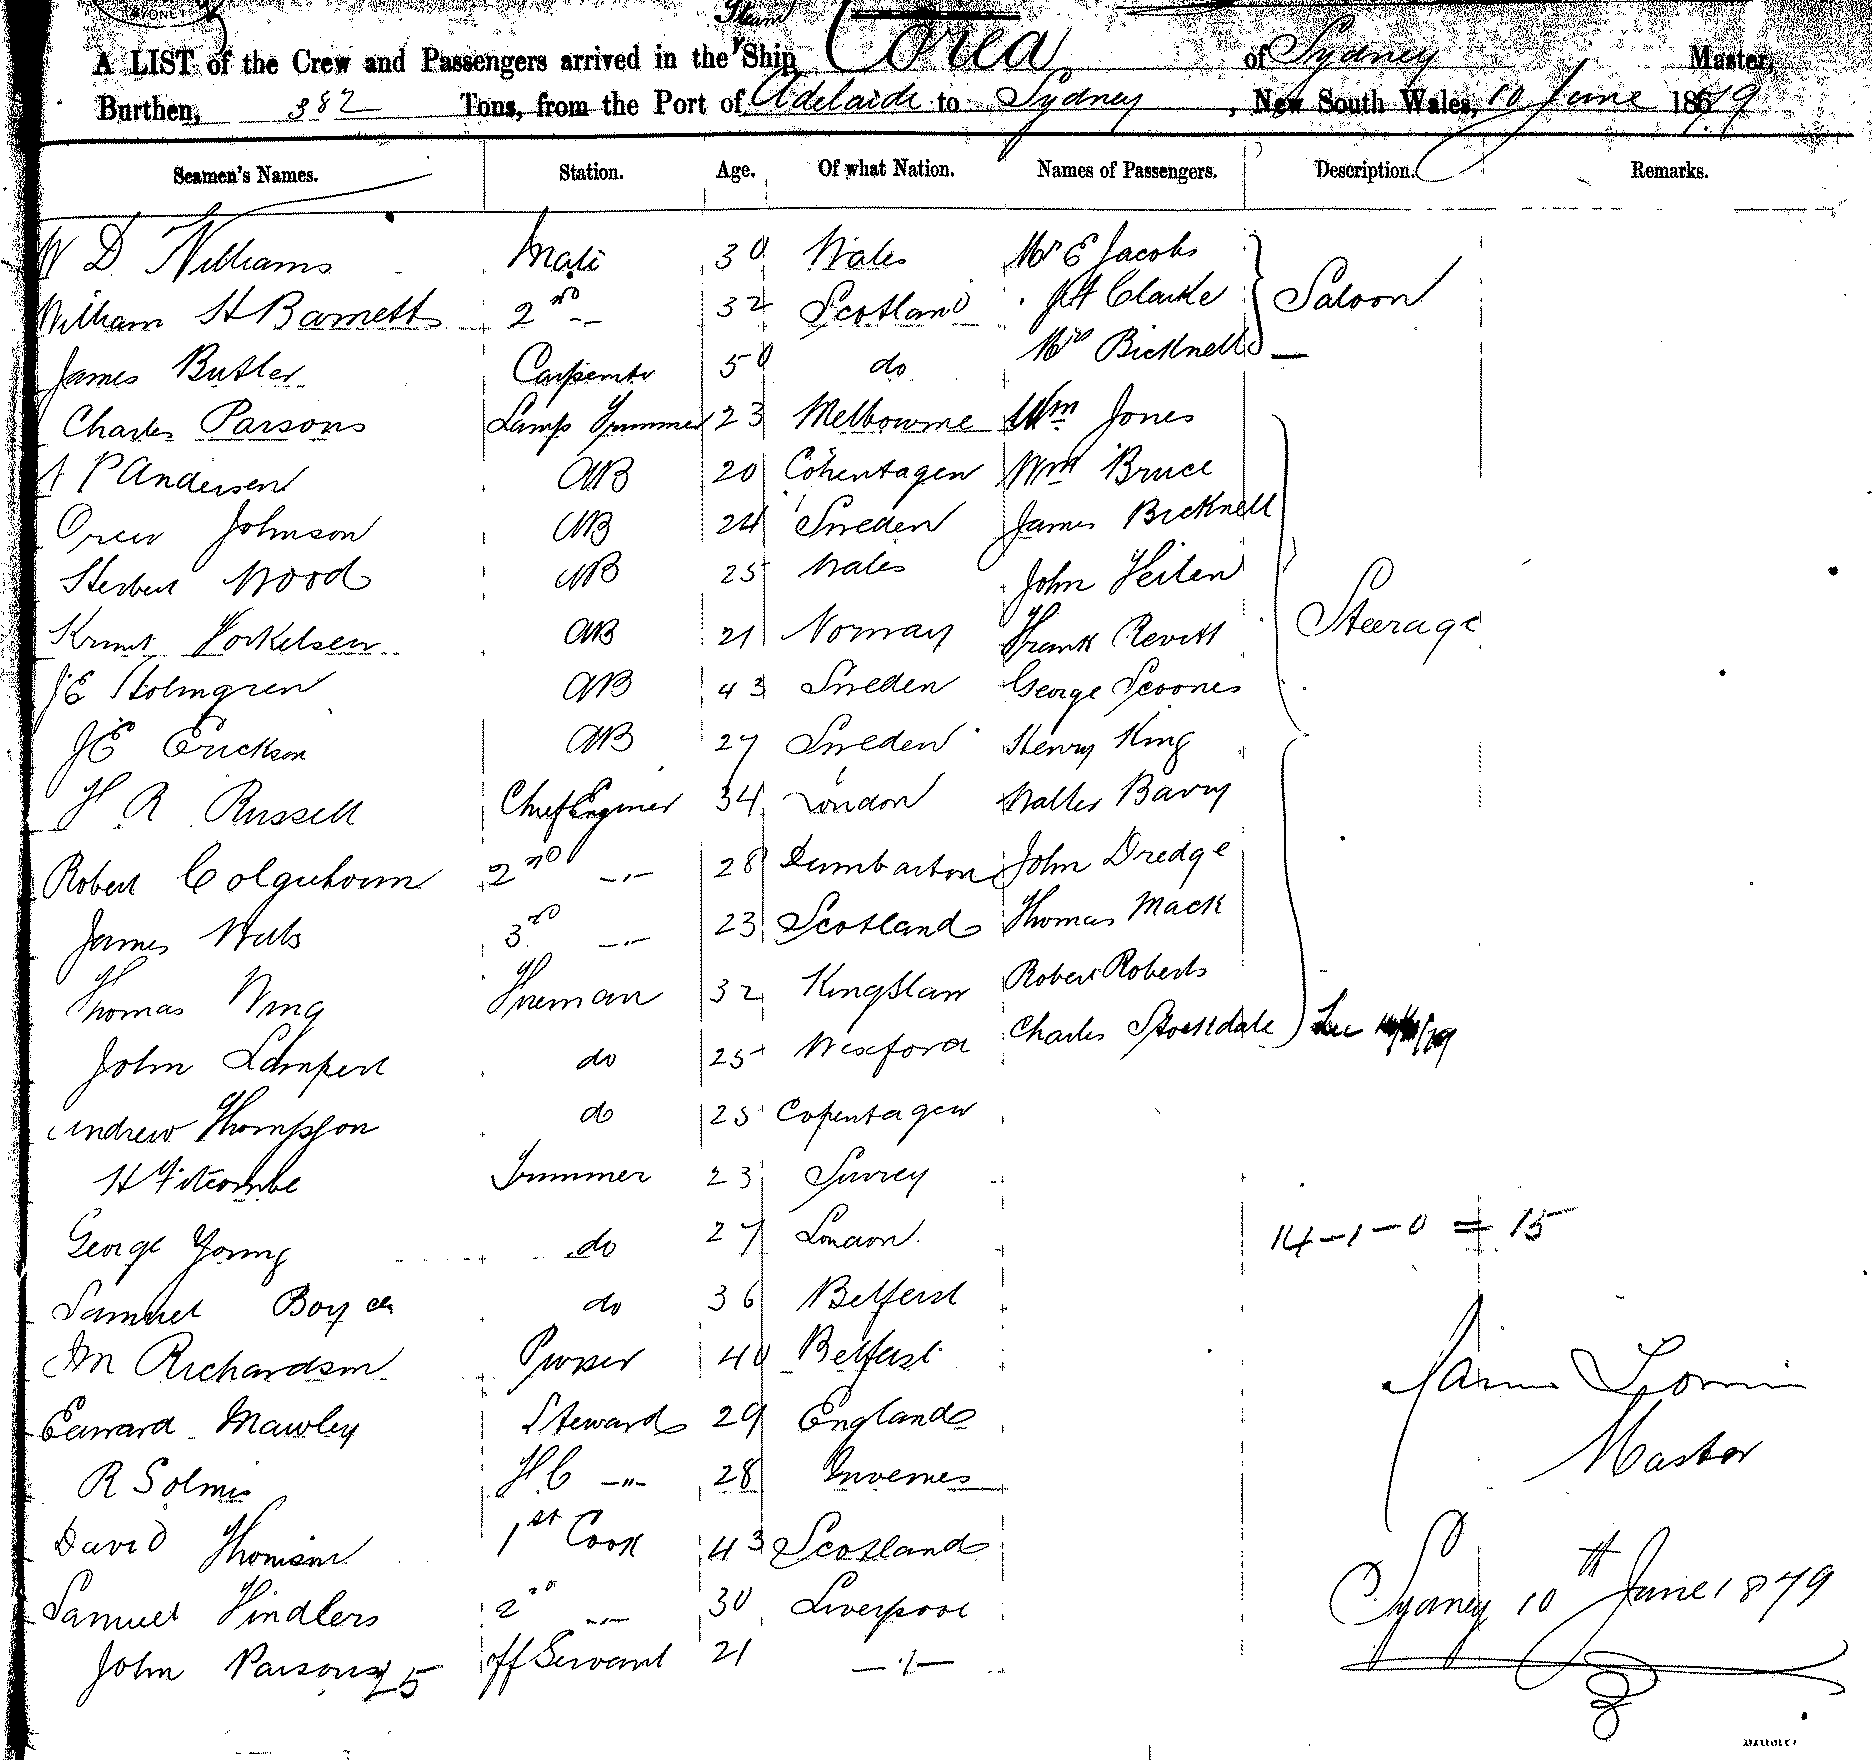 SYDNEY
Steam
A LIST of the Crew and Passengers arrived in the Ship Corea of Sydney Master,
Burthen, 382 Tons, from the Port of Adelaide to Sydney, New South Wales, 10 June 1879
Seamen's Names. Station. Age. Of what Nation. Names of Passengers. Description. Remarks.
W D Williams Mate 30 Wales Mr E Jacobs
William H Barnett 2nd -..- 32 Scotland Clarke Saloon
James Butler Carpenter 50 do Mrs Bicknell
Charles Parsons Lamp Trimmer 23 Melbourne Wm Jones
P Andersen AB 20 Copenhagen Wm Bruce
Johnson AB 24 Sweden James Bicknell
Herbert Wood AB 25 Wales John
Torkelsen AB 21 Norway Frank Revitt Steerage
J E Holmgren AB 43 Sweden George Scoones
J E Erickson AB 27 Sweden Henry King
H R Russell Chief Engineer 34 London Walter Barry
Robert Colquhoun 2nd -..- 28 Dumbarton John Dredge
James 3rd -..- 23 Scotland Thomas Mack
Thomas Wing Fireman 32 Robert Roberts
John Lampert do 25 Wexford Charles Stockdale
Andrew Thompson do 25 Copenhagen
H Titcombe Trimmer 23 Surrey
George Young do 27 London 14-1-0 = 15
Samuel Boyd do 36 Belfast
Richardson Purser 40 Belfast
Edward Mawley Steward 29 England
Master
R F C -..- 28 Inverness
David Thomson 1st Cook 43 Scotland
Samuel Hindlers 2nd -..- 30 Liverpool Sydney 10th June 1879
John Parsons off Servant 21 -..-
25